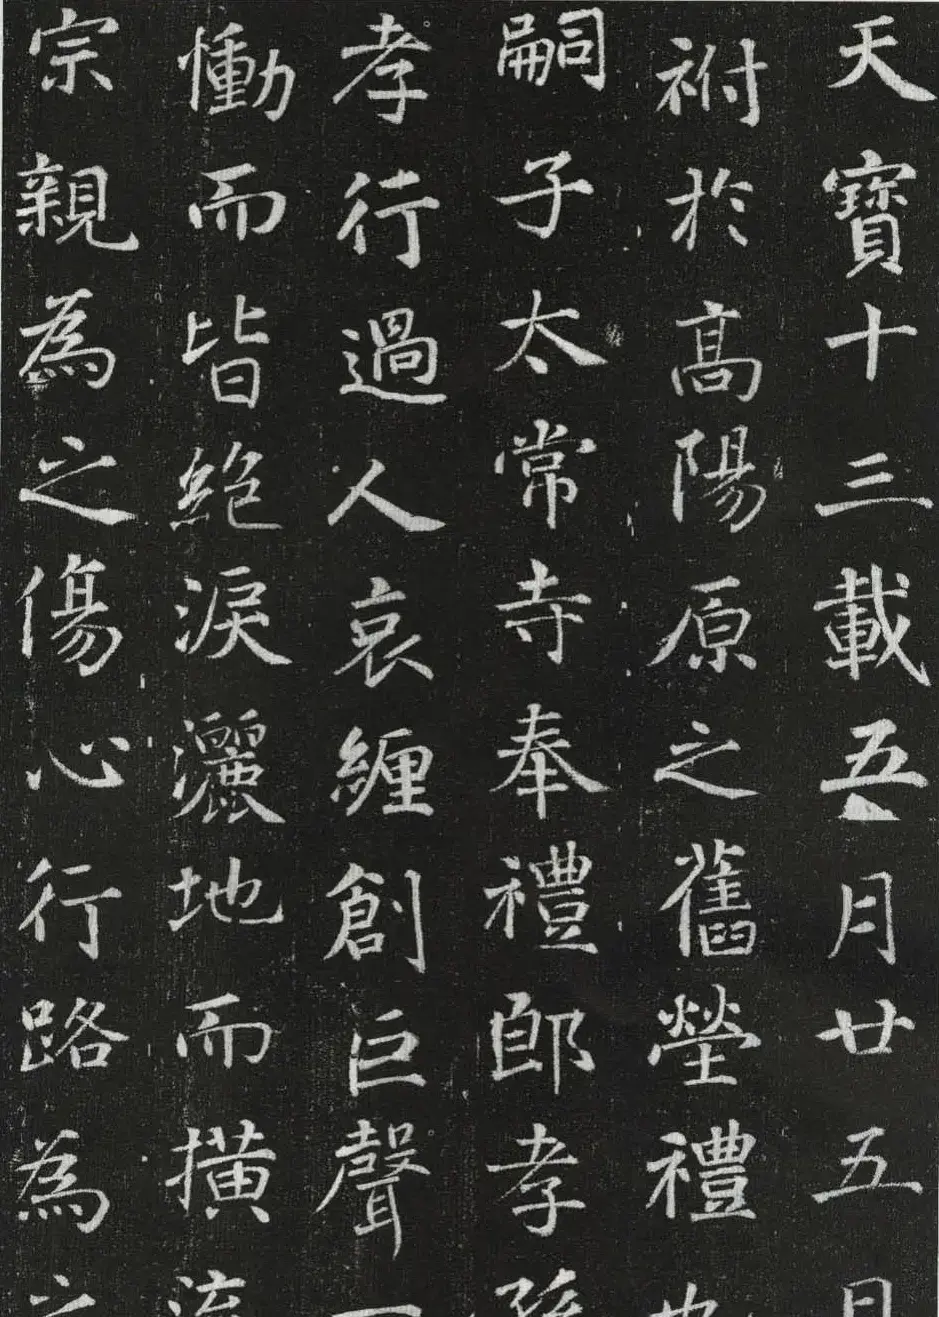 天寶十三載五月廿五日
祔於高陽原之舊塋禮也
嗣子太常寺奉禮郎孝孫
孝行過人哀纏創巨聲一
慟而皆絕淚灑地而撗流
宗親為之傷心行路為之